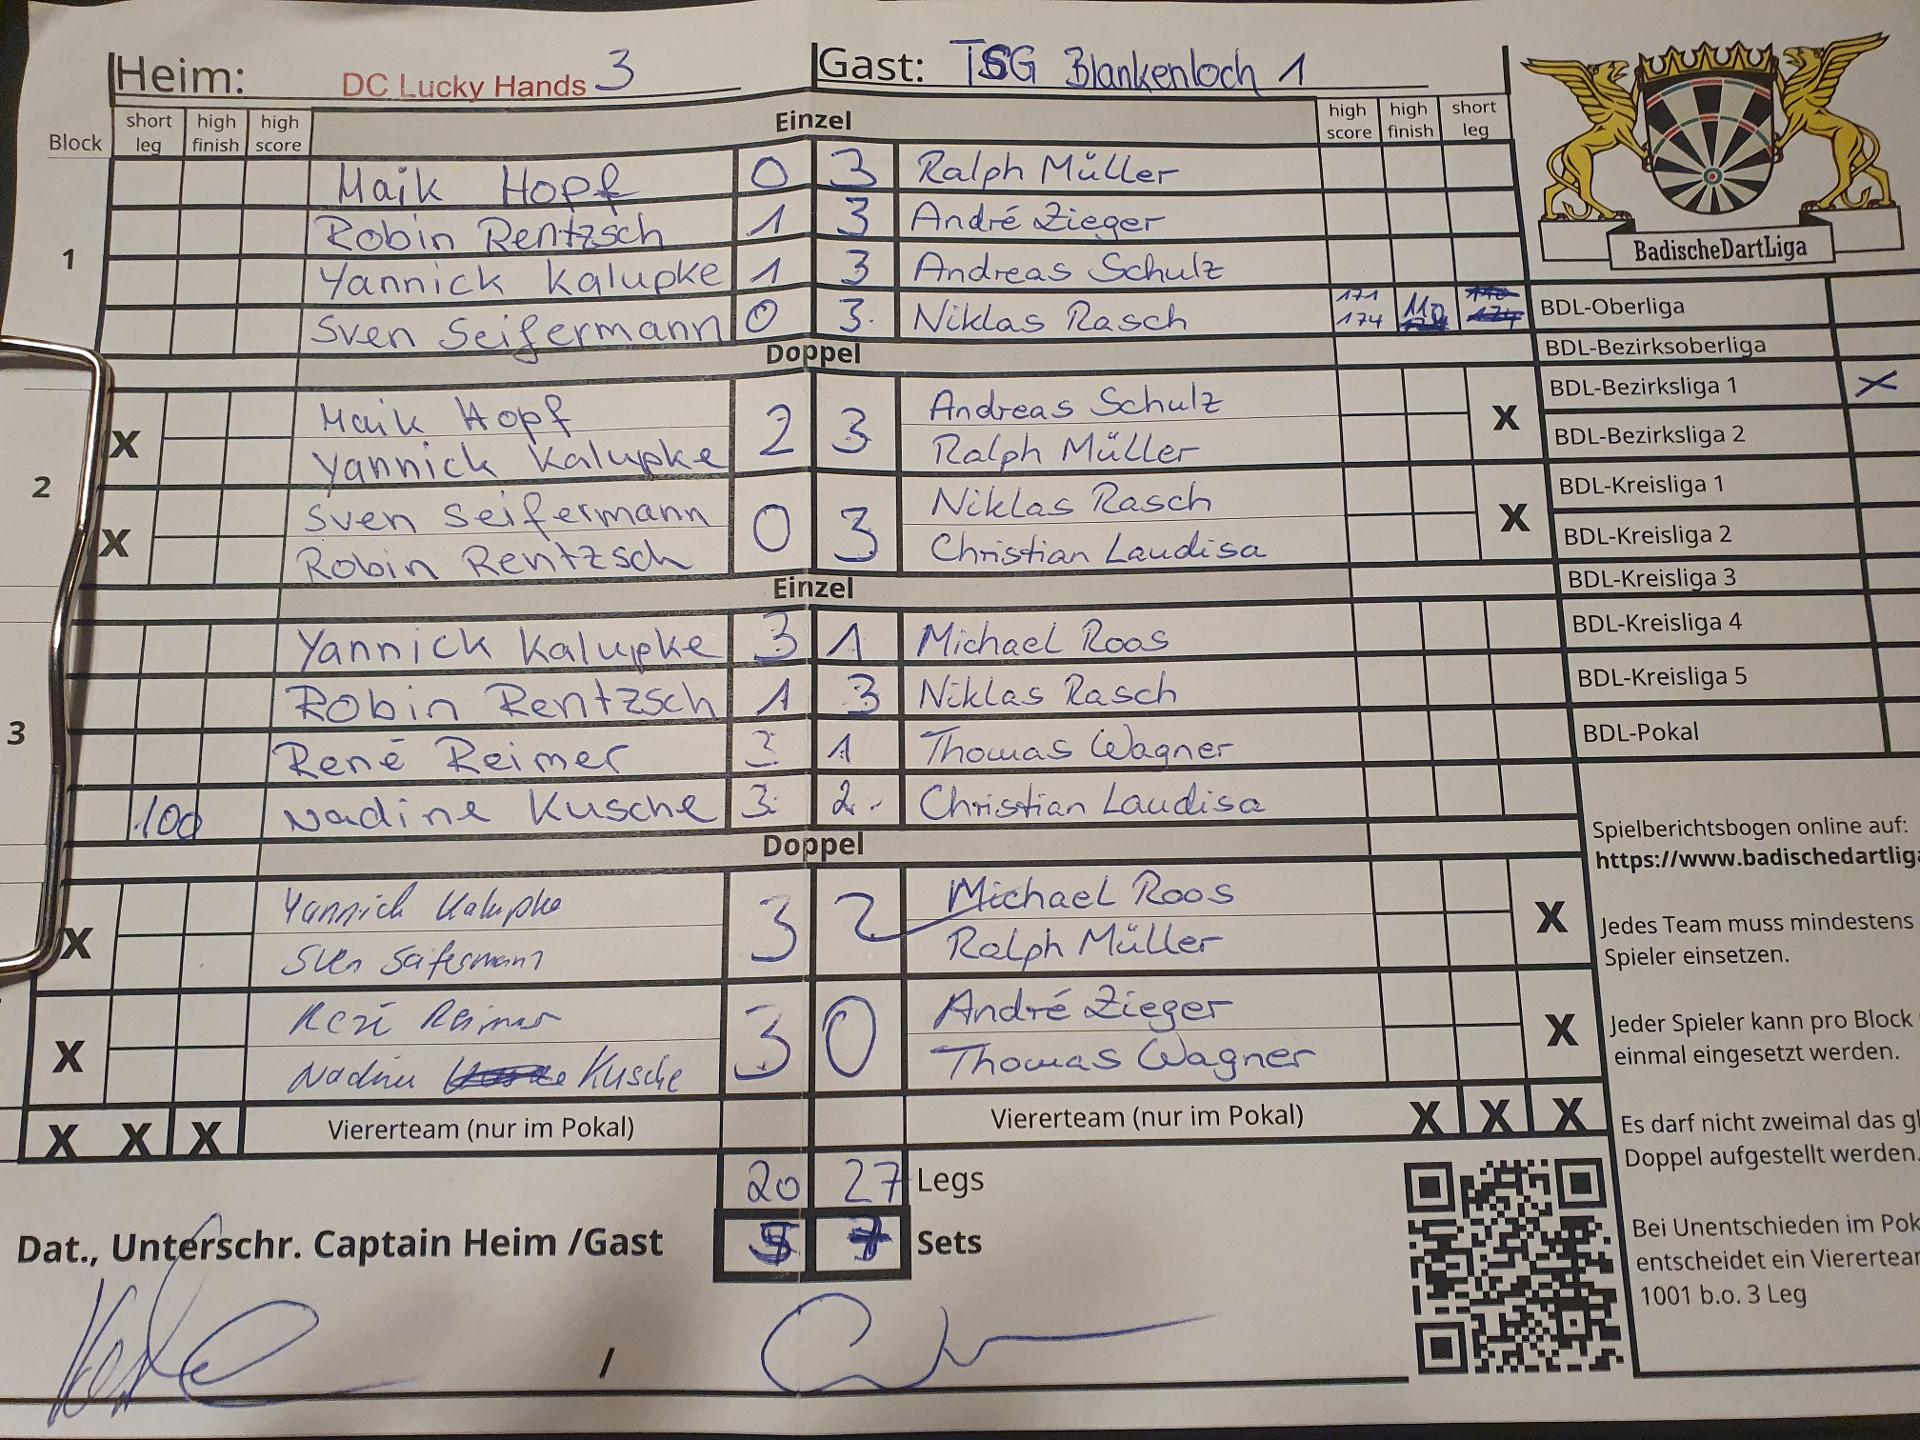 Heim: DC Lucky Hands 3 Gast: TSG Blankenloch 1
Block short leg high finish high score Einzel high score high finish short leg
1
Maik Hopf 0 3 Ralph Müller
Robin Rentzsch 1 3 André Zieger
Yannick Kalupke 1 3 Andreas Schulz
Sven Seifermann 0 3 Niklas Rasch 171 174 110
Doppel
2
X Maik Hopf 2 3 Andreas Schulz X
Yannick Kalupke Ralph Müller
X Sven Seifermann 0 3 Niklas Rasch X
Robin Rentzsch Christian Laudisa
Einzel
3
Yannick Kalupke 3 1 Michael Roos
Robin Rentzsch 1 3 Niklas Rasch
René Reimer 3 1 Thomas Wagner
100 Nadine Kusche 3 2 Christian Laudisa
Doppel
X Yannick Kalupke 3 2 Michael Roos X
Sven Seifermann Ralph Müller
X René Reimer 3 0 André Zieger X
Nadine Kusche Thomas Wagner
X X X Viererteam (nur im Pokal) Viererteam (nur im Pokal) X X X
20 27 Legs
Dat., Unterschr. Captain Heim /Gast 5 7 Sets
/
BadischeDartLiga
BDL-Oberliga
BDL-Bezirksoberliga
BDL-Bezirksliga 1 X
BDL-Bezirksliga 2
BDL-Kreisliga 1
BDL-Kreisliga 2
BDL-Kreisliga 3
BDL-Kreisliga 4
BDL-Kreisliga 5
BDL-Pokal
Spielberichtsbogen online auf:
https://www.badischedartliga
Jedes Team muss mindestens
Spieler einsetzen.
Jeder Spieler kann pro Block
einmal eingesetzt werden.
Es darf nicht zweimal das gl
Doppel aufgestellt werden.
Bei Unentschieden im Pok
entscheidet ein Vierertea
1001 b.o. 3 Leg